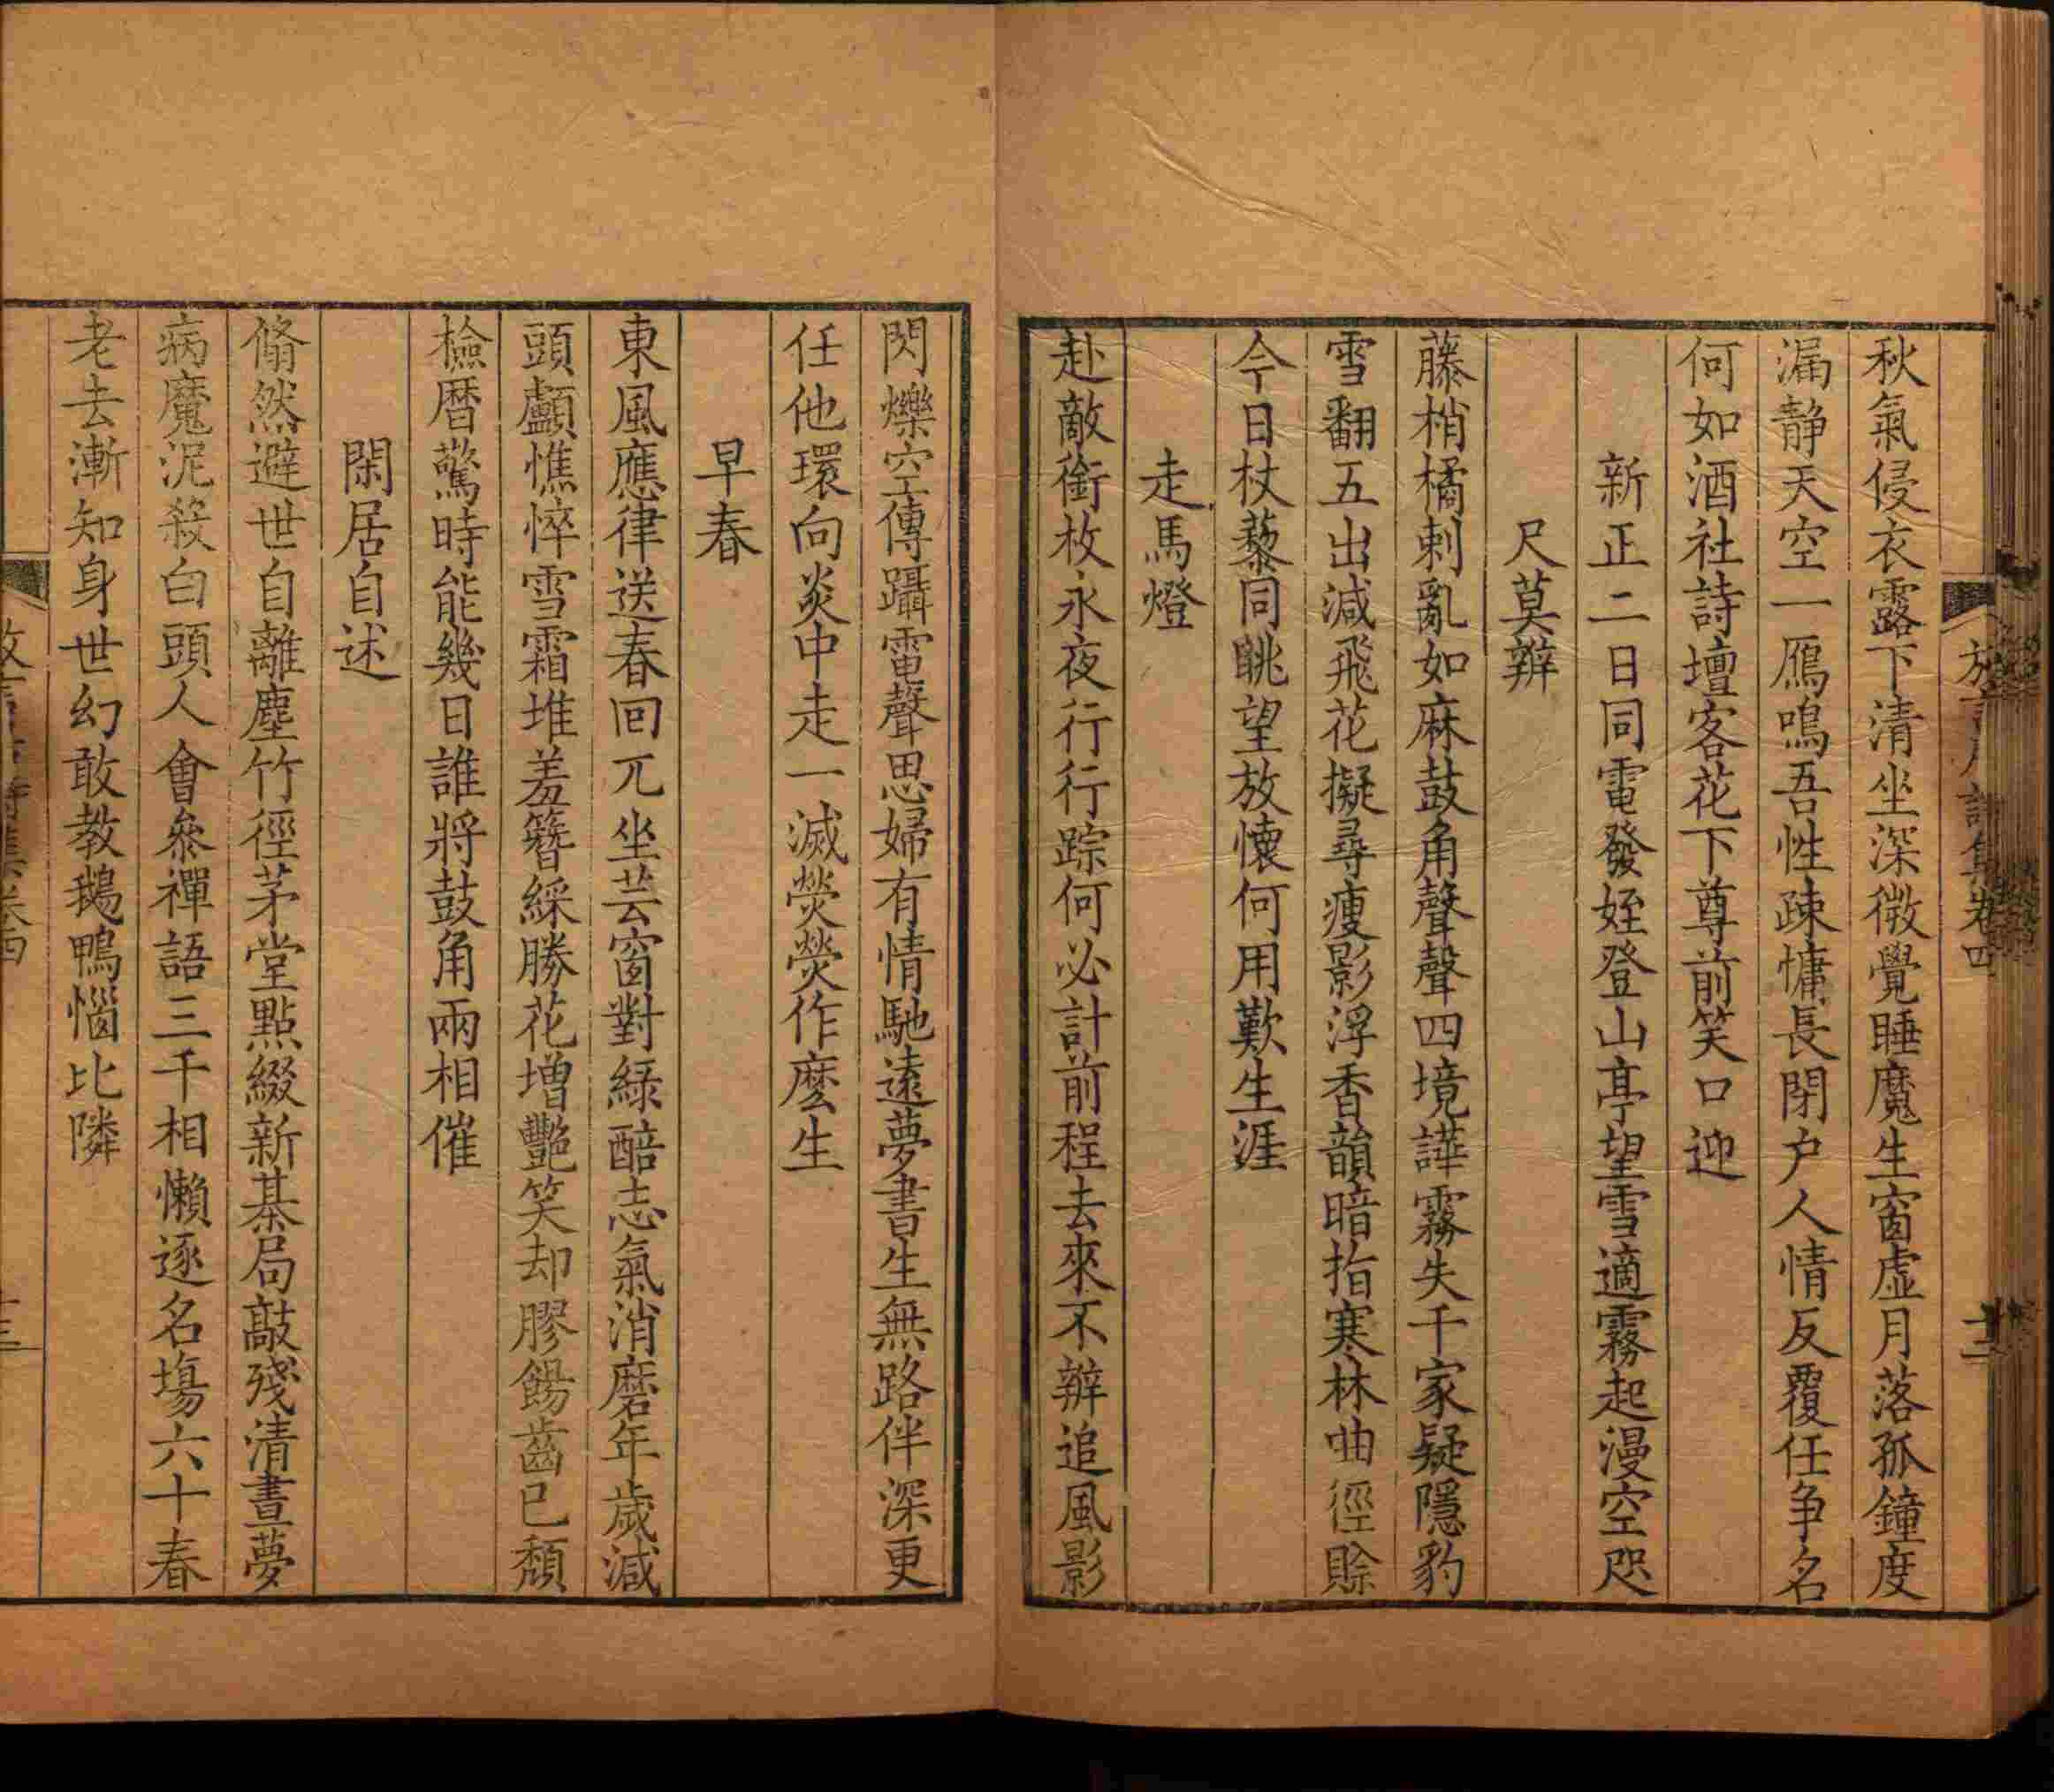 秋氣侵衣露下清坐深微覺睡魔生窗虛月落孤鐘度
漏静天空一鴈鳴吾性疎慵長閉户人情反覆任争名
何如酒社詩壇客花下尊前笑口迎
新正二日同電發姪登山亭望雪適霧起漫空咫
尺莫辨
藤梢橘刺亂如麻鼓角聲聲四境譁霧失千家疑隱豹
雪翻五出減飛花擬尋瘦影浮香韻暗指寒林曲徑賒
今日杖藜同眺望放懷何用歎生涯
走馬燈
赴敵銜枚永夜行行踪何必計前程去來不辨追風影
閃爍空傳躡電聲思婦有情馳遠夢書生無路伴深更
任他環向炎中走一滅熒熒作麼生
早春
東風應律送春回兀坐芸窗對綠醅志氣消磨年歲減
頭顱憔悴雪霜堆羞簪綵勝花增艷笑却膠餳齒已頹
檢曆驚時能幾日誰將鼓角兩相催
閑居自述
翛然避世自離塵竹徑茅堂點綴新棊局敲殘清晝夢
病魔泥殺白頭人會叅禪語三千相懶逐名塲六十春
老去漸知身世幻敢教鵝鴨惱比隣
卷四
十二
卷四
十三